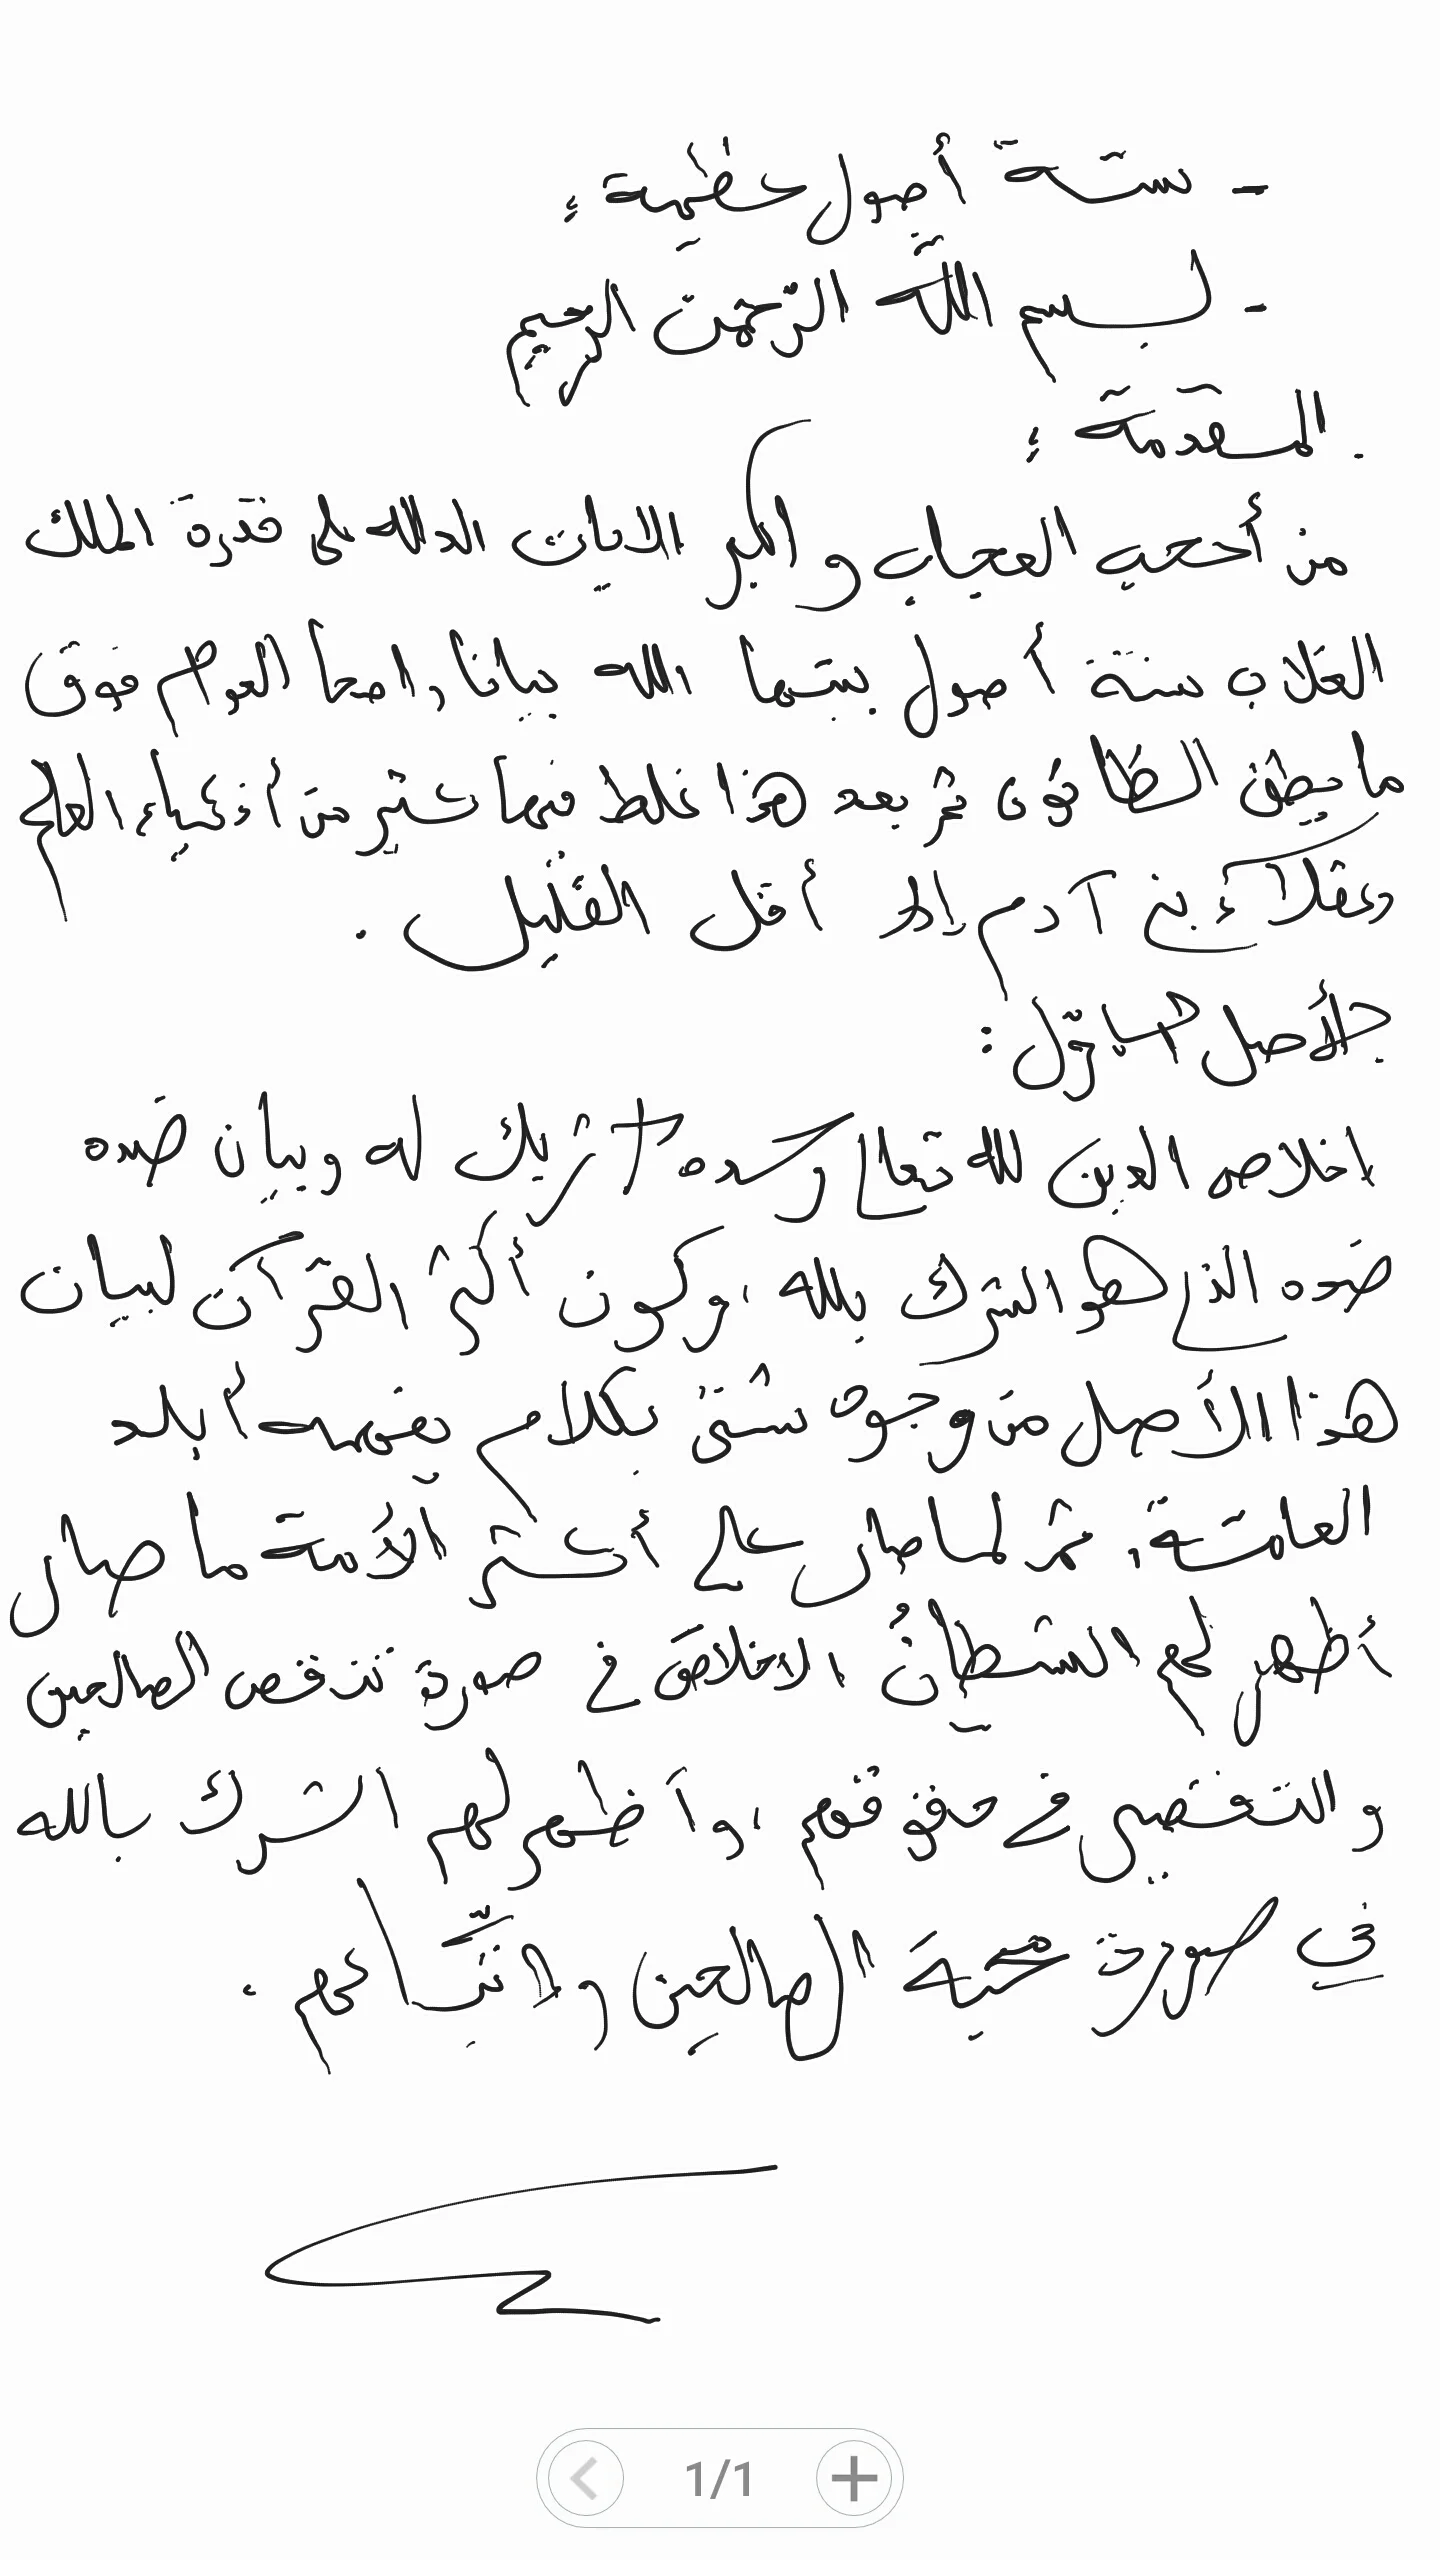 - ستة أصول عظيمة :
- بسم الله الرحمن الرحيم
. المقدمة :
من أعجب العجاب و أكبر الايات الداله على قدرة الملك
الغلاب ستة أصول بينها الله بيانا واضحا للعوام فوق
ما يظن الظانون ثم بعد هذا غلط فيها كثير من أذكياء العالم
وعقلاء بني آدم إلا أقل القليل .
الأصل الاول :
اخلاص الدين لله تعالى وحده لا شريك له وبيان ضده
ضده الذي هو الشرك بلله ، وكون أكثر القرآن لبيان
هذا الأصل من وجوه شتى بكلام يفهمه أبلد
العامة، ثم لما صار على أكثر الأمة ما صار
أظهر لهم الشيطان الاخلاص في صورة تنقص الصالحين
والتقصير في حقوقهم ، وأظهر لهم الشرك بالله
في صورة محبة الصالحين واتباعهم .
1/1